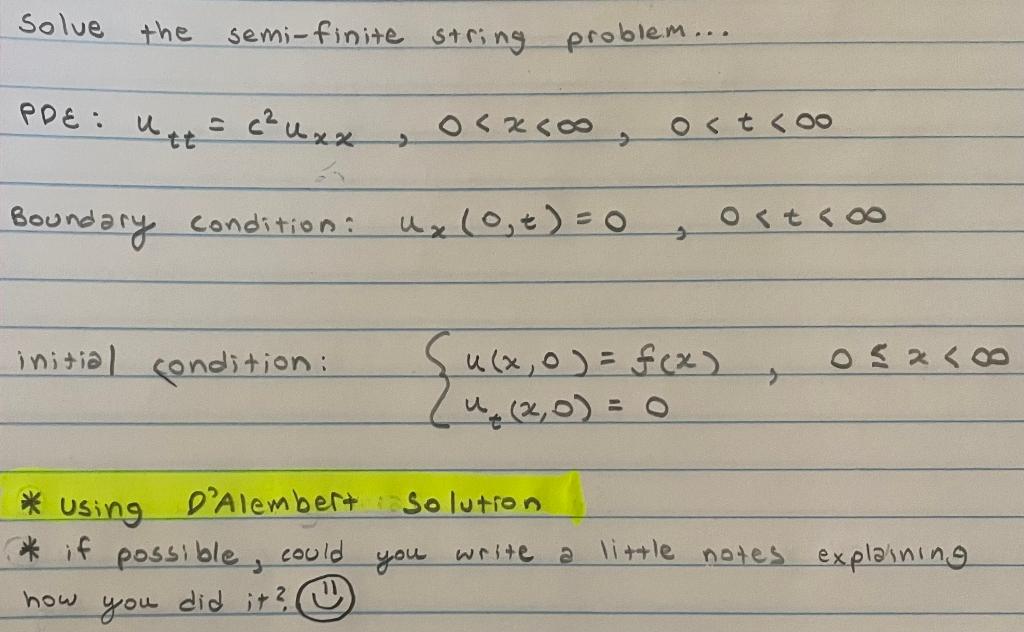 Solve the semi-finite string problem...
PDE: u_tt = c² u_xx , 0 < x < ∞ , 0 < t < ∞
Boundary condition: u_x (0,t) = 0 , 0 < t < ∞
initial condition: { u(x,0) = f(x) , 0 ≤ x < ∞
u_t (x,0) = 0
* using D'Alembert solution
* if possible, could you write a little notes explaining
how you did it?